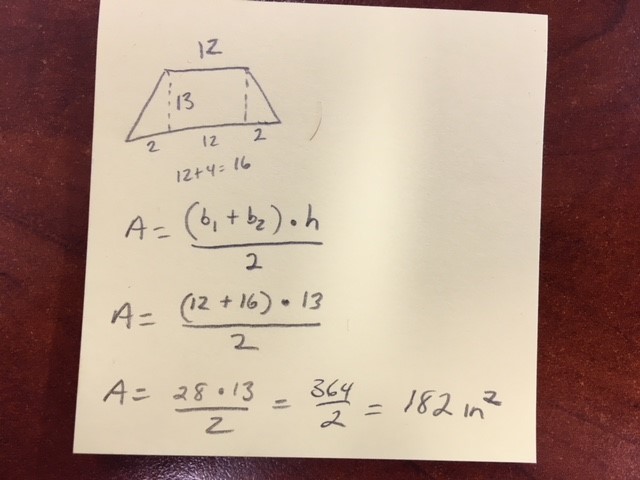 12
13
2 12 2
12+4=16
A = (b₁ + b₂) • h
2
A = (12 + 16) • 13
2
A = 28 • 13 / 2 = 364 / 2 = 182 in²